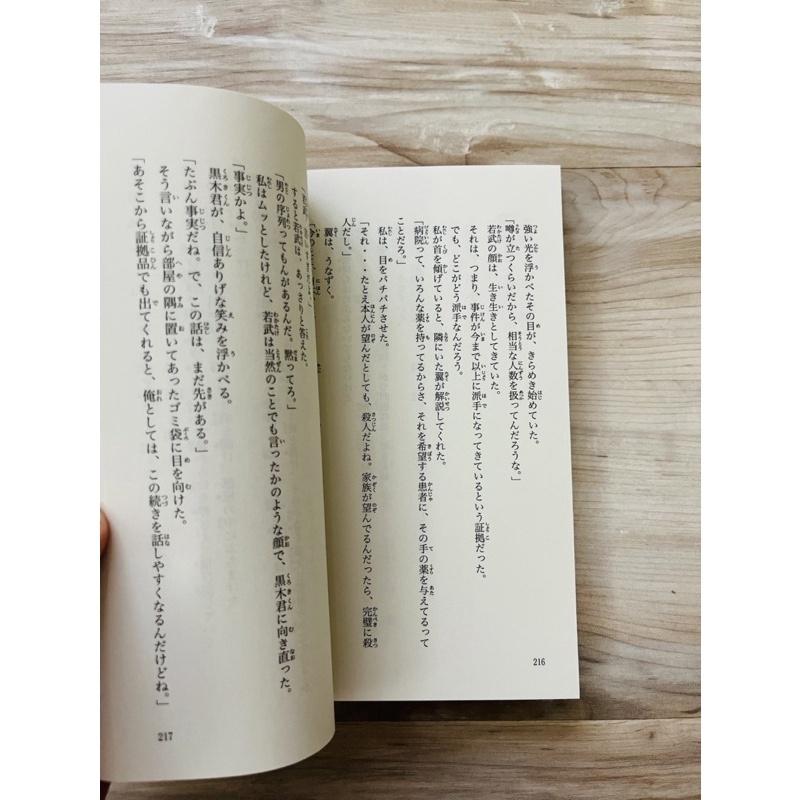 強い光を浮かべたその目が、きらめき始めていた。
「噂が立つくらいだから、相当な人数を扱ってんだろうな。」
若武の顔は、生き生きとしてきていた。
それは、つまり、事件が今まで以上に派手になってきているという証拠だった。
でも、どこがどう派手なんだろう。
私が首を傾げていると、隣にいた翼が解説してくれた。
「病院って、いろんな薬を持ってるからさ、それを希望する患者に、その手の薬を与えてるって
ことだろ。」
私は、目をパチパチさせた。
「それ・・・たとえ本人が望んだとしても、殺人だよね。家族が望んでるんだったら、完璧に殺
人だし。」
翼は、うなずく。
216
すると若武は、あっさりと答えた。
「男の序列ってもんがあるんだ。黙ってろ。」
私はムッとしたけれど、若武は当然のことでも言ったかのような顔で、黒木君に向き直った。
「事実かよ。」
黒木君が、自信ありげな笑みを浮かべる。
「たぶん事実だね。で、この話は、まだ先がある。」
そう言いながら部屋の隅に置いてあったゴミ袋に目を向けた。
「あそこから証拠品でも出てくれると、俺としては、この続きを話しやすくなるんだけどね。」
217